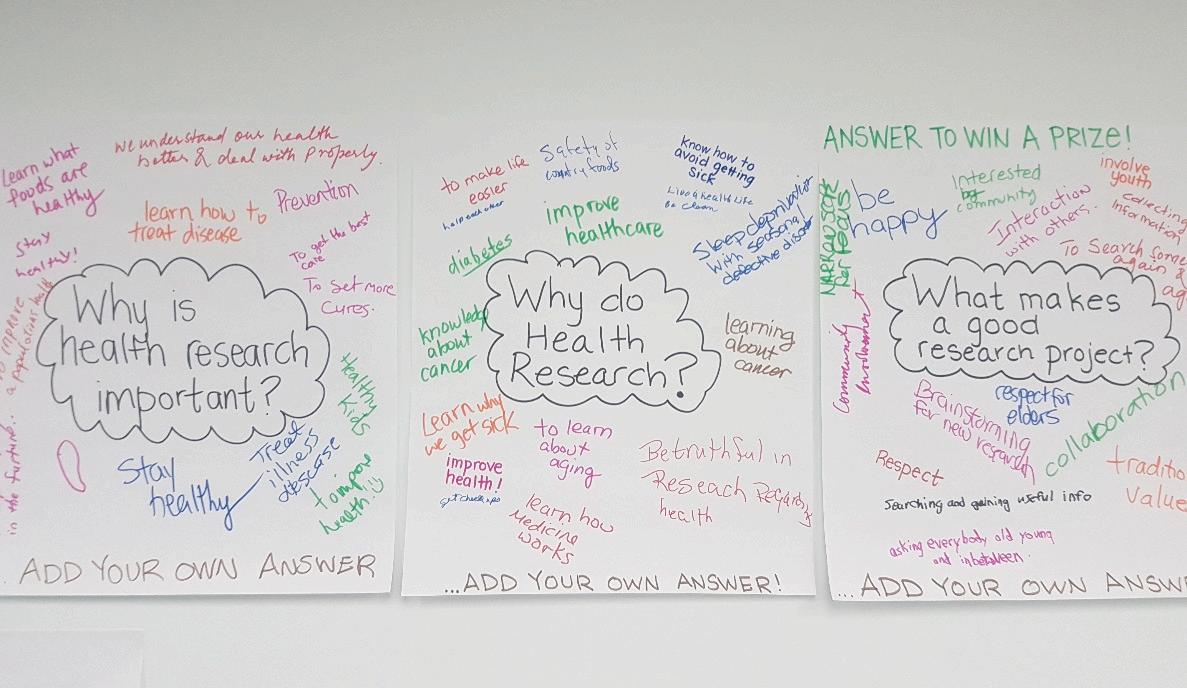 Learn what
foods are
healthy
we understand our health
better & deal with Properly.
learn how to
treat disease
Prevention
Stay
healthy!
To get the best
care
To get more
Cures.
Why is
health research
important?
to improve
a populations health
in the furture.
Healthy
Kids
Stay
healthy
Treat
illness
descase
to impore
health
ADD YOUR OWN ANSWER
to make life
easier
help each other
Safety of
country foods
Know how to
avoid getting
sick
Live a health Life
Be Clean
improve
healthcare
diabetes
Sleep deprivation
With seasonal
defective
Why do
Health
Research?
knowledge
about
cancer
learning
about
cancer
Learn why
we get sick
to learn
about
aging
improve
health!
get checkups
Be truthful in
Reseach Regards
health
learn how
Medicine
works
...ADD YOUR OWN ANSWER!
ANSWER TO WIN A PRIZE!
be
happy
Interested
community
Interaction
with others.
involve
youth
Collecting
Information
To Search some
again &
ag
What makes
a good
research project?
Community
Involvement
Brainstorming
for new research
respect for
elders
collaboration
Respect
traditio
Value
Searching and gaining useful info
asking everybody old young
and inbetween.
...ADD YOUR OWN ANSW